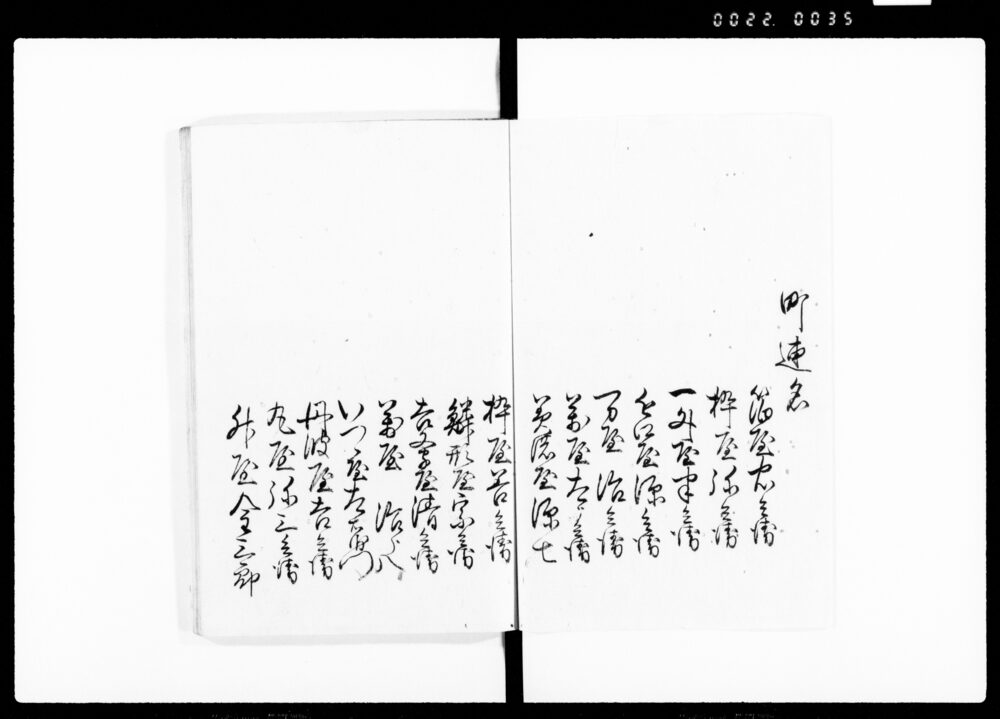 0022. 0035
町連名
屋忠兵衛
枠屋弥兵衛
一文屋半兵衛
近江屋源兵衛
万屋治兵衛
万屋太兵衛
美濃屋源七
枠屋善兵衛
鱗形屋宗兵衛
吉文字屋清兵衛
萬屋治八
いつゝ屋右衛門
丹波屋吉兵衛
丸屋弥三兵衛
升屋金三郎